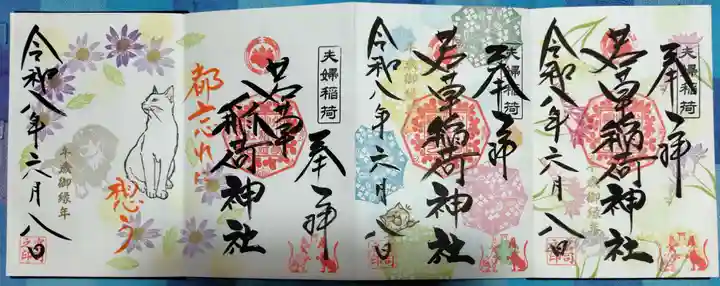 奉拝
夫婦稲荷
若草稲荷神社
午歳御縁年
令和八年六月八日
奉拝
夫婦稲荷
若草稲荷神社
午歳御縁年
令和八年六月八日
奉拝
夫婦稲荷
若草
稲荷神社
都忘れに
想う
午歳御縁年
令和八年六月八日